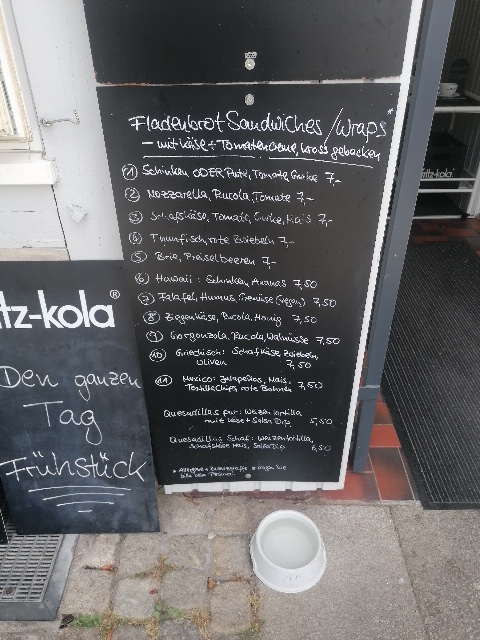 Fladenbrot Sandwiches / Wraps*
- mit Käse + Tomatencreme, kross gebacken
1 Schinken ODER Pute, Tomate, Gurke 7,-
2 Mozzarella, Rucola, Tomate 7,-
3 Schafskäse, Tomate, Gurke, Mais 7,-
4 Thunfisch, rote Zwiebeln 7,-
5 Brie, Preiselbeeren 7,-
6 Hawaii: Schinken, Ananas 7,50
7 Falafel, Humus, Gemüse (vegan) 7,50
8 Ziegenkäse, Rucola, Honig 7,50
9 Gorgonzola, Rucola, Walnüsse 7,50
10 Griechisch: Schafskäse, Zwiebeln,
Oliven 7,50
11 Mexico: Jalapeños, Mais,
Tortillachips, rote Bohnen 7,50
Quesadillas pur: Weizentortilla
mit Käse + Salsa Dip 5,50
Quesadillas Schaf: Weizentortilla,
Schafskäse, Mais, Salsa Dip 6,50
fritz-kola
tz-kola®
Den ganzen
Tag
Frühstück